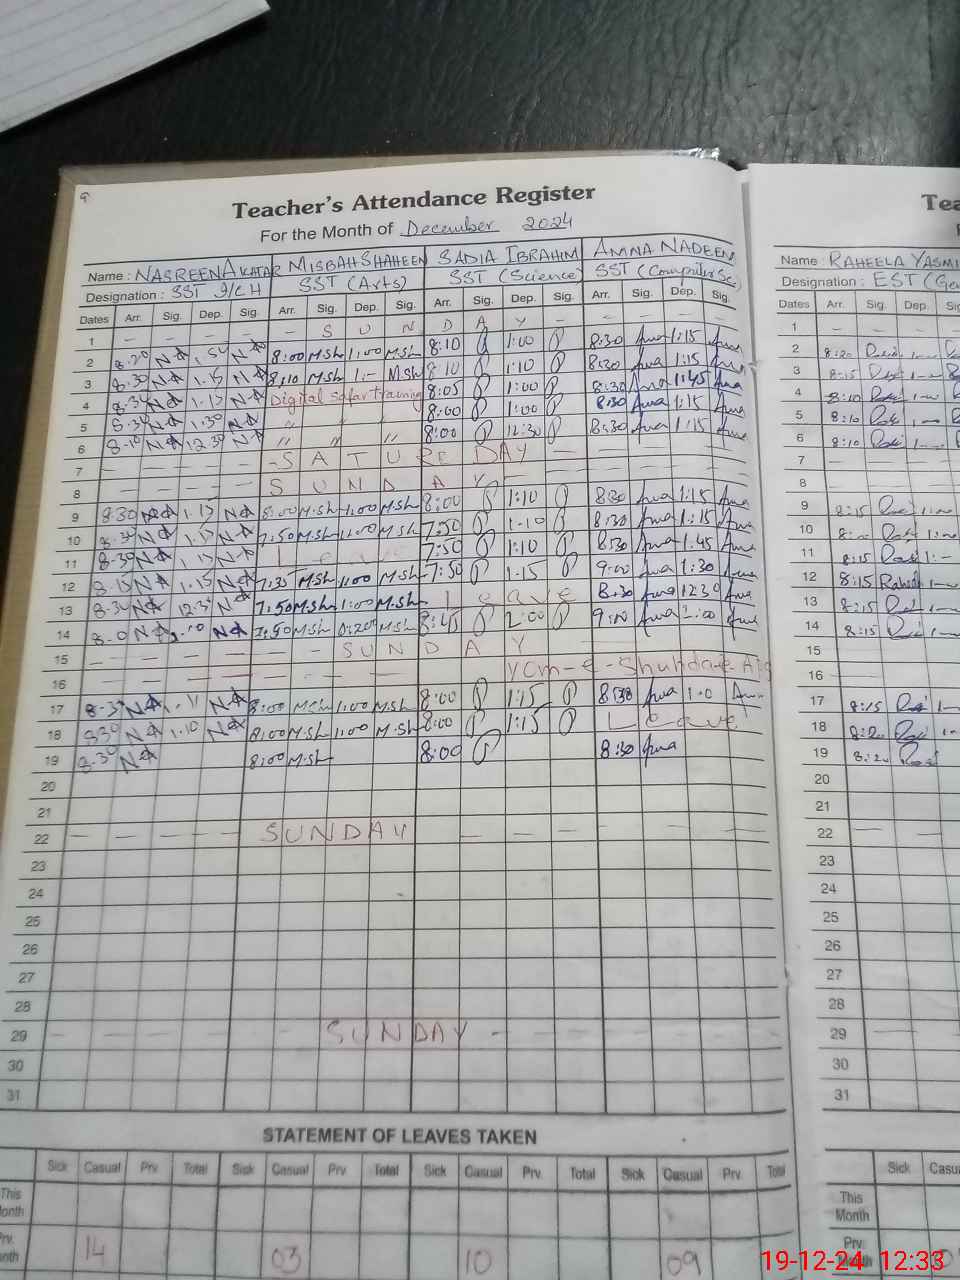 9
Teacher's Attendance Register
For the Month of December 2024
Name : NASREEN AKHTAR MISBAH SHAHEEN SADIA IBRAHIM AMNA NADEEM
Designation : SST I/CH SST (Arts) SST (Science) SST (Computer Sc)
Dates Arr. Sig. Dep. Sig. Arr. Sig. Dep. Sig. Arr. Sig. Dep. Sig. Arr. Sig. Dep. Sig.
1 SUNDAY
2 8:20 NA NA 8:00 M.Sh 1:00 M.Sh 8:10 1:00 8:30 1:15
3 8:30 NA 1.15 NA 8:10 M.Sh 1:- M.Sh 8:10 1:10 8:30 1:15
4 8:30 NA 1.15 NA Digital safar training 8:05 1:00 8:30 1:45
5 8:30 NA 1:30 NA " " " 8:00 1:00 8:30 1:15
6 8:10 NA 12.30 NA " " " 8:00 12:30 8:30 1:15
7 SATUREDAY
8 SUNDAY
9 8:30 NA 1.15 NA 8:00 M.Sh 1:00 M.Sh 8:00 1:10 8:30 1:15
10 8:30 NA 1.15 NA 7:50 M.Sh 1:00 M.Sh 7:50 1-10 8:30 1:15
11 8:30 NA 1.15 NA Leave 7:50 1:10 8:30 1:45
12 8:15 NA 1.15 NA 7:35 M.Sh 1:00 M.Sh 7:50 1.15 9:00 1:30
13 8:30 NA 12.30 NA 7:50 M.Sh 1:00 M.Sh Leave 8:30 1230
14 NA NA 7:50 M.Sh M.Sh 8:45 2:00 9:00 2:00
15 SUNDAY
16 YOM-e-Shuhda-e-APS
17 8:30 NA NA 8:00 M.Sh 1:00 M.Sh 8:00 1:15 8:30 1:0
18 830 NA 1:10 NA 8:00 M.Sh 1:00 M.Sh 8:00 1:15 Leave
19 8:30 NA 8:00 M.Sh 8:00 8:30
20
21
22 SUNDAY
23
24
25
26
27
28
29 SUNDAY
30
31
STATEMENT OF LEAVES TAKEN
Sick Casual Prv. Total Sick Casual Prv. Total Sick Casual Prv. Total Sick Casual Prv. Total
This Month
Prv. Month 14 03 10 09
Tea
Name : RAHEELA YASMI
Designation : EST (Ge
Dates Arr. Sig. Dep. Sig
1
2 8:20
3 8:15
4 8:10
5 8:10
6 8:10
7
8
9 8:15
10 8:00
11 8:15 1:-
12 8:15
13 8:15
14 8:15
15
16
17 8:15
18 8:20
19 8:20
20
21
22
23
24
25
26
27
28
29
30
31
Sick Casu
This Month
Prv. Month
19-12-24 12:33